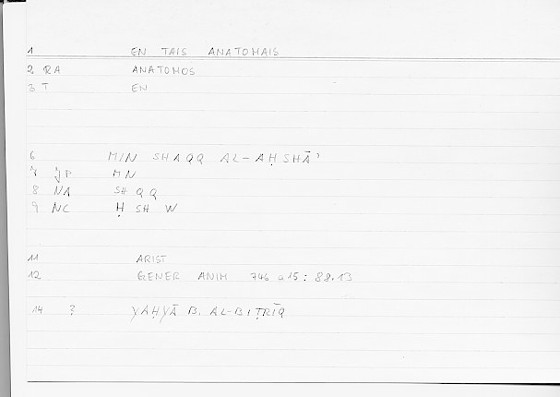 1 EN TAIS ANATOMAIS
2 RA ANATOMOS
3 T EN
6 MIN SHAQQ AL-AḤSHĀʾ
7 MN
8 NA SH Q Q
9 NC Ḥ SH W
11 ARIST
12 GENER ANIM 746 a 15 : 88.13
14 ? YAḤYĀ B. AL-BIṬRĪQ